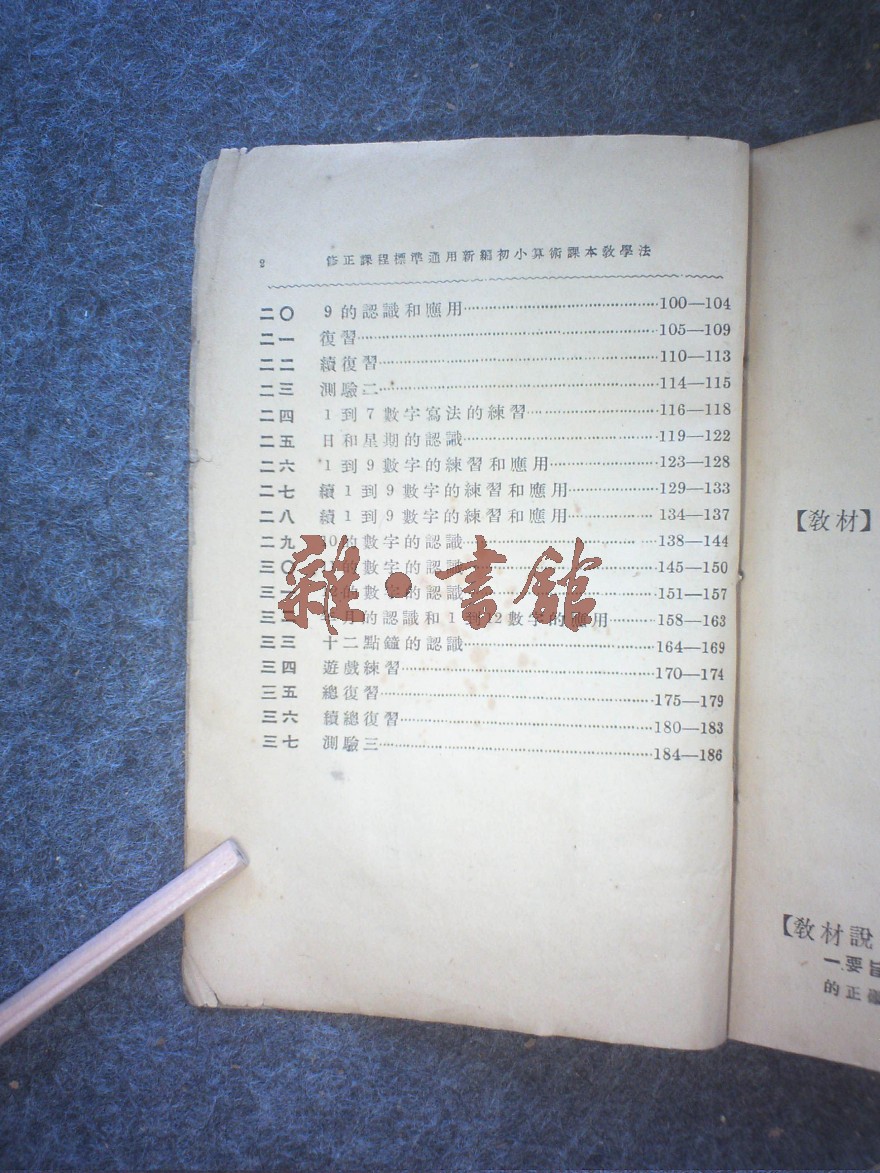 2 修正課程標準通用新編初小算術課本教學法
二〇 9的認識和應用 100—104
二一 復習 105—109
二二 續復習 110—113
二三 測驗二 114—115
二四 1到7數字寫法的練習 116—118
二五 日和星期的認識 119—122
二六 1到9數字的練習和應用 123—128
二七 續1到9數字的練習和應用 129—133
二八 續1到9數字的練習和應用 134—137
二九 10的數字的認識 138—144
三〇 的數字的認識 145—150
三 的數字的認識 151—157
三 月的認識和1到12數字的應用 158—163
三三 十二點鐘的認識 164—169
三四 遊戲練習 170—174
三五 總復習 175—179
三六 續總復習 180—183
三七 測驗三 184—186
雜·書館
【教材】
【教材說
一.要旨
的正